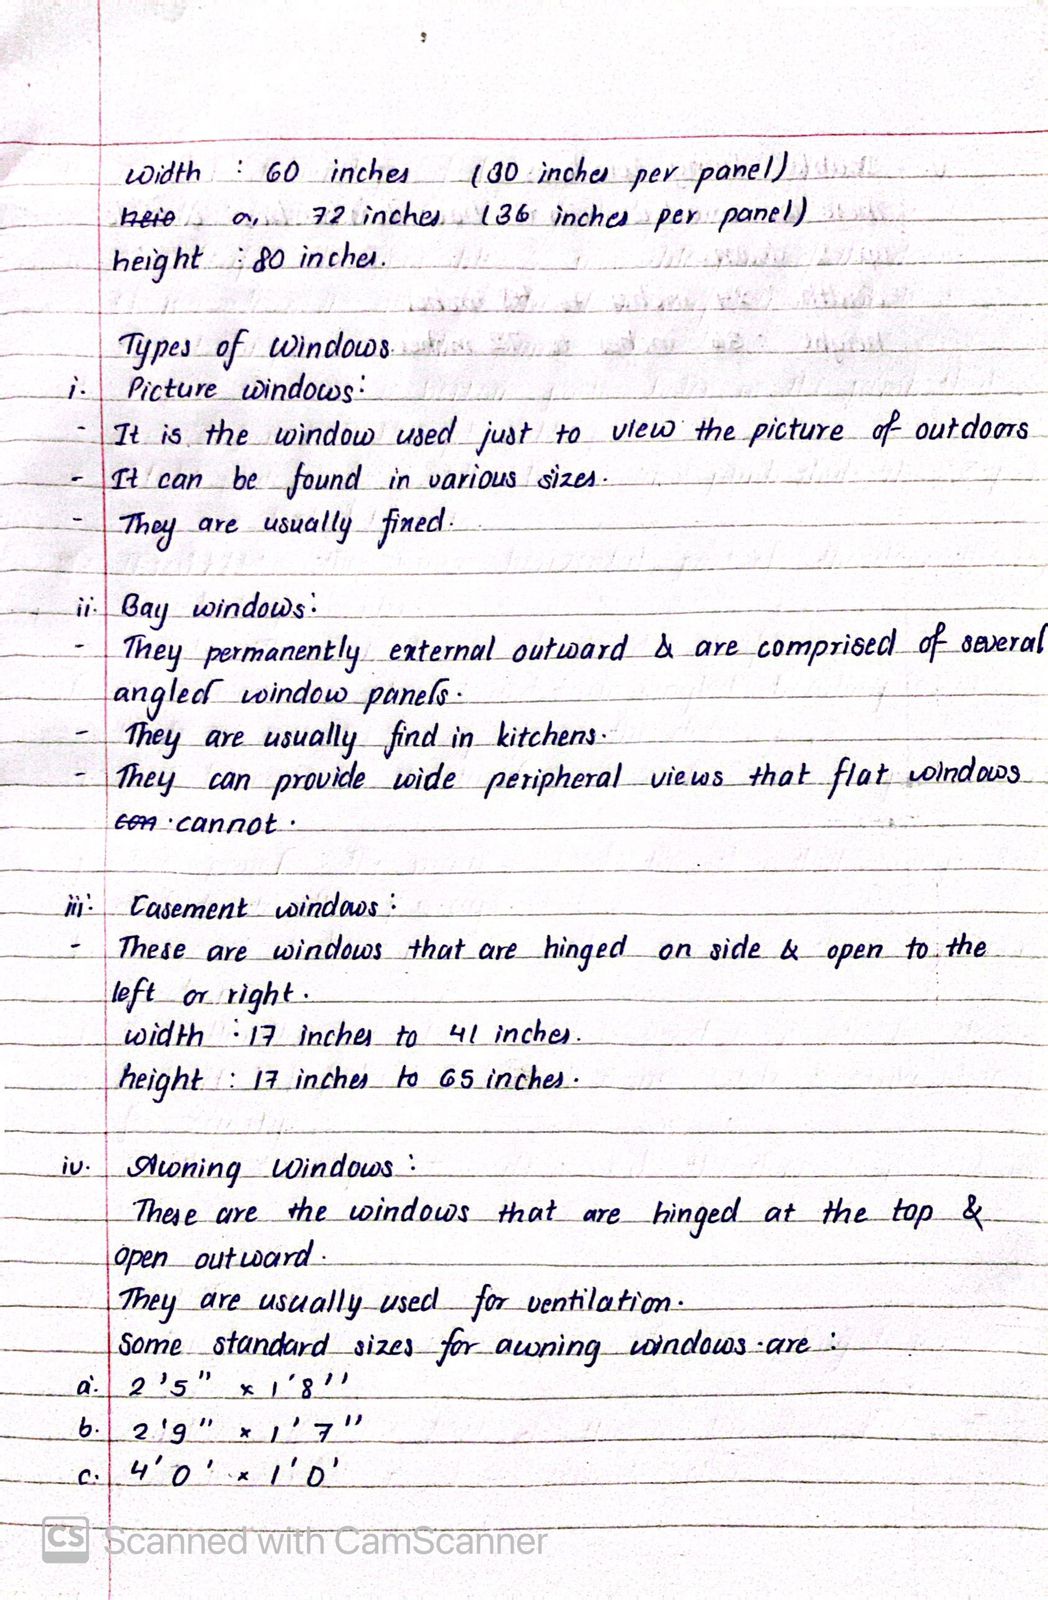 width : 60 inches (30 inches per panel)
heie or 72 inches (36 inches per panel)
height : 80 inches.
Types of windows.
i. Picture windows:
- It is the window used just to view the picture of outdoors
- It can be found in various sizes.
- They are usually fixed.
ii. Bay windows:
- They permanently external outward & are comprised of several
angled window panels.
- They are usually find in kitchens.
- They can provide wide peripheral views that flat windows
can cannot.
iii. Casement windows:
- These are windows that are hinged on side & open to the
left or right.
width : 17 inches to 41 inches.
height : 17 inches to 65 inches.
iv. Awning Windows:
These are the windows that are hinged at the top &
open outward.
They are usually used for ventilation.
Some standard sizes for awning windows are :
a. 2'5" × 1'8''
b. 2'9" × 1'7"
c. 4'0' × 1'0'
CS Scanned with CamScanner